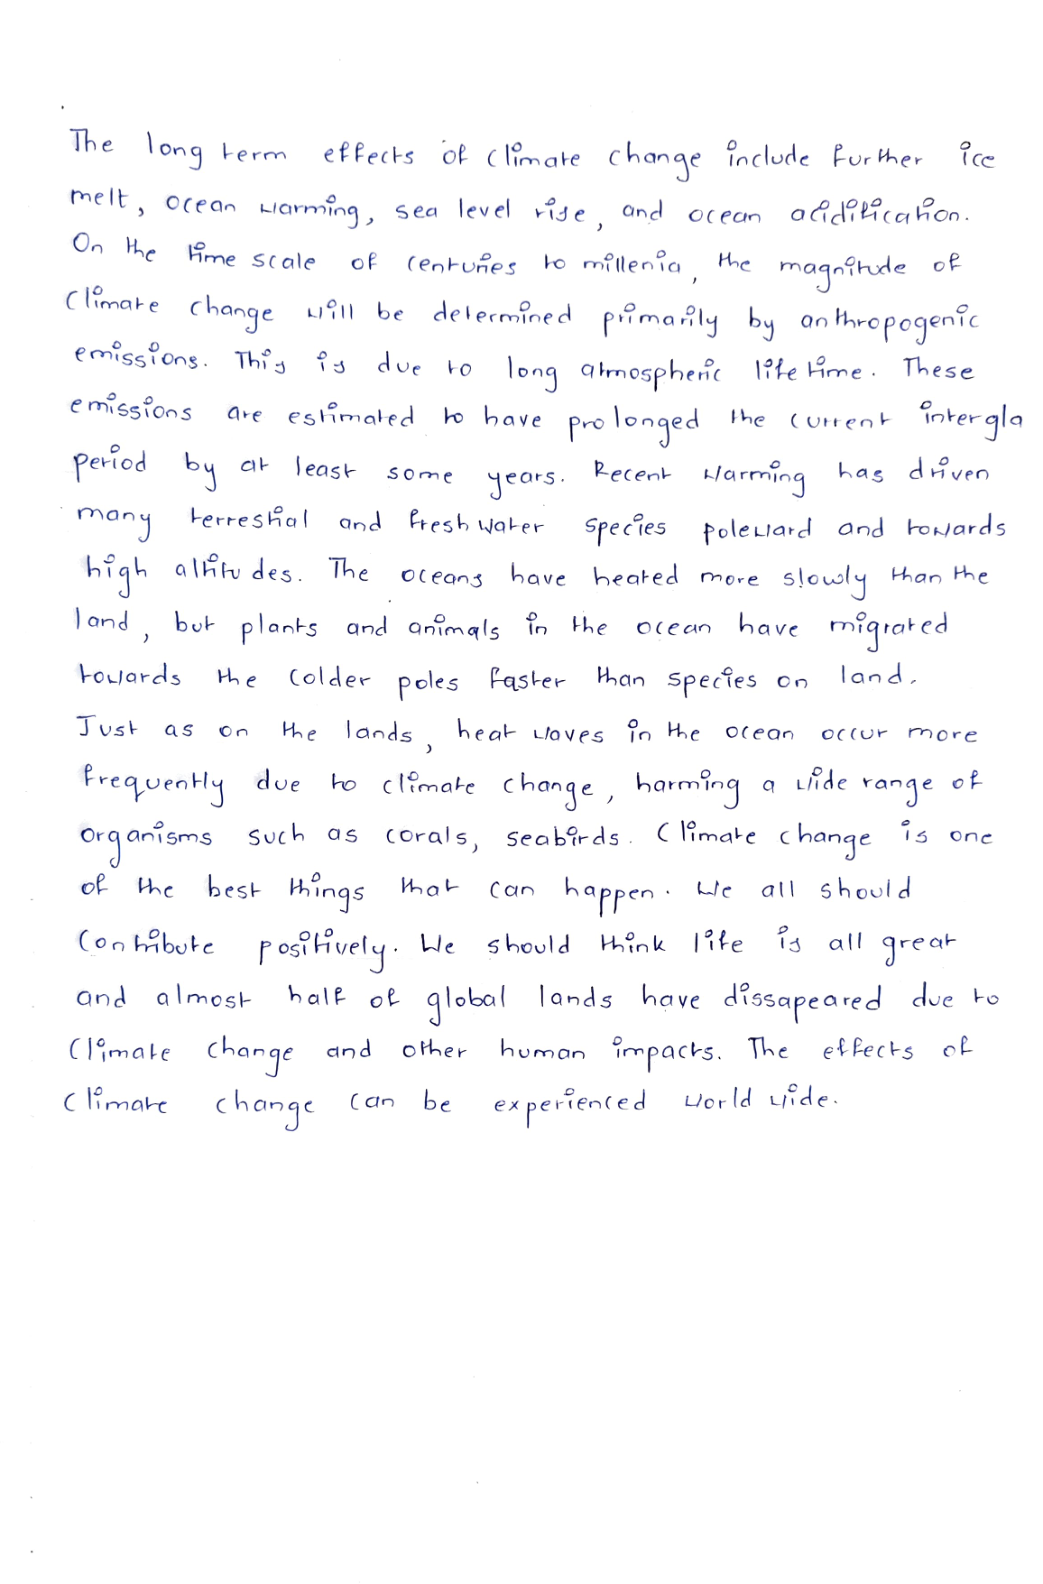 The long term effects of climate change include further ice
melt, ocean warming, sea level rise, and ocean acidification.
On the time scale of centuries to millenia, the magnitude of
climate change will be determined primarily by anthropogenic
emissions. This is due to long atmospheric life time. These
emissions are estimated to have prolonged the current intergla
period by at least some years. Recent warming has driven
many terrestial and fresh water species poleward and towards
high altitudes. The oceans have heated more slowly than the
land, but plants and animals in the ocean have migrated
towards the colder poles faster than species on land.
Just as on the lands, heat waves in the ocean occur more
frequently due to climate change, harming a wide range of
organisms such as corals, seabirds. Climate change is one
of the best things that can happen. We all should
contribute positively. We should think life is all great
and almost half of global lands have dissapeared due to
climate change and other human impacts. The effects of
climate change can be experienced world wide.